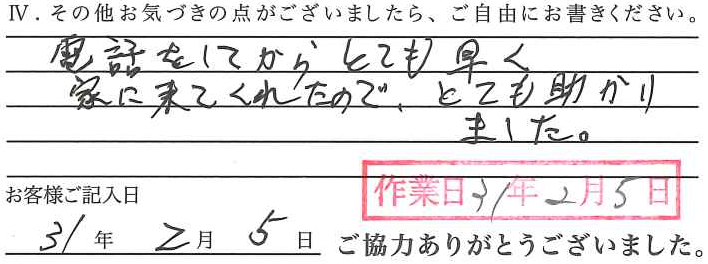 Ⅳ．その他お気づきの点がございましたら、ご自由にお書きください。
電話をしてからとても早く
家に来てくれたので、とても助かり
ました。
作業日31年2月5日
お客様ご記入日
31年 2月 5日 ご協力ありがとうございました。